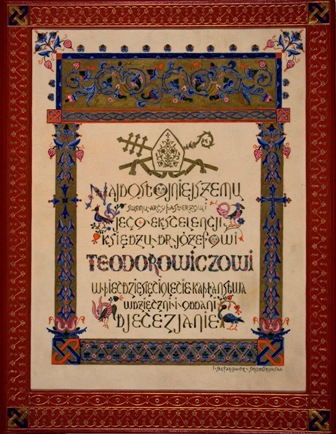 NAJDOSTOJNIEJSZEMU
SWEMU ARCYPASTERZOWI
JEGO EKSCELENCJI
KSIĘDZU DR JÓZEFOWI
TEODOROWICZOWI
W PIĘĆDZIESIĘCIOLECIE KAPŁAŃSTWA
WDZIĘCZNI I ODDANI
DJECEZJANIE